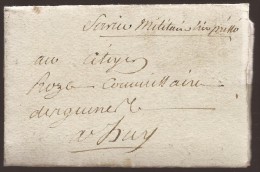 Service Militaire
au Citoyen
Roze Commissaire
des guerres
a huy